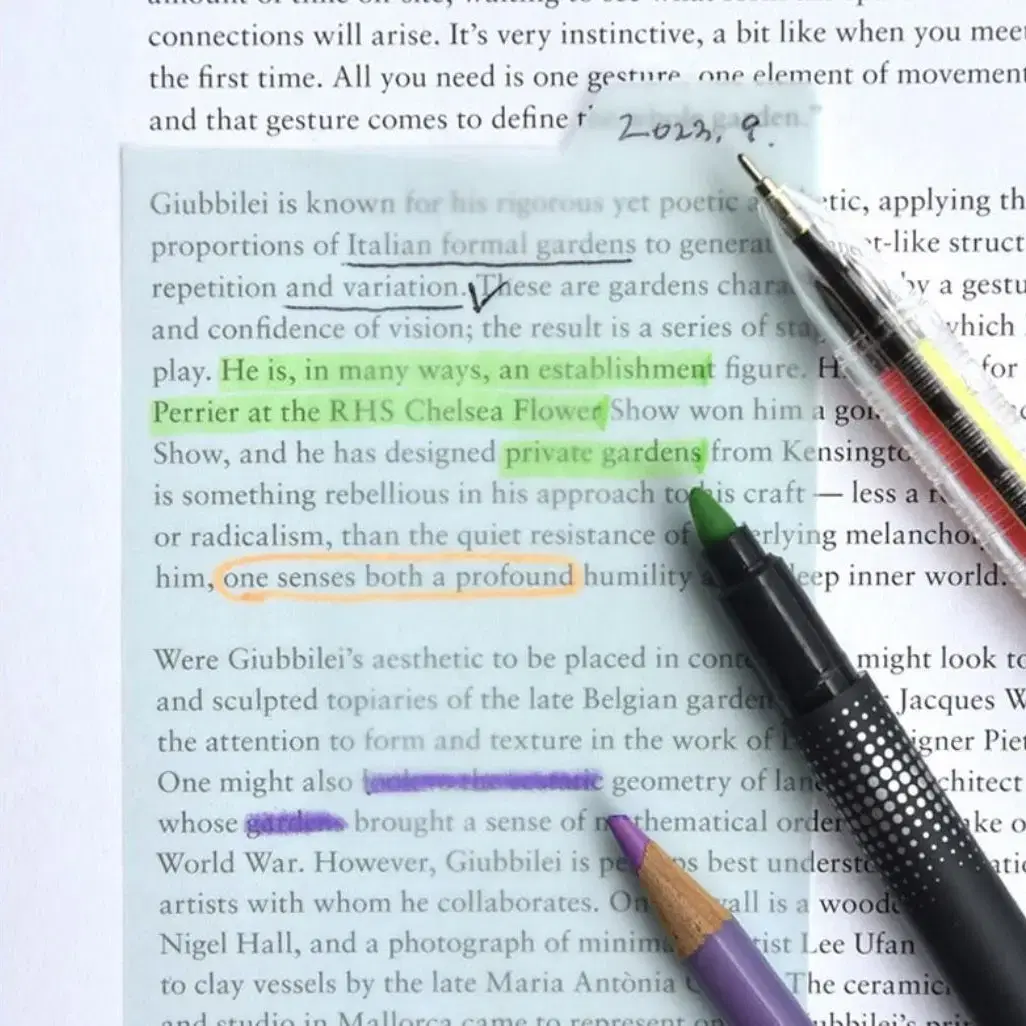 connections will arise. It's very instinctive, a bit like when you meet
the first time. All you need is one gesture, one element of movement
and that gesture comes to define garden."
2023. 9.
Giubbilei is known for his rigorous yet poetic applying
proportions of Italian formal gardens to -like
repetition and variation. These are gardens by a
and confidence of vision; the result is a series of which
play. He is, in many ways, an establishment figure. for
Perrier at the RHS Chelsea Flower Show won him a
Show, and he has designed private gardens from
is something rebellious in his approach to his craft — less a
or radicalism, than the quiet resistance of
him, one senses both a profound humility deep inner world.
Were Giubbilei's aesthetic to be placed in might look to
and sculpted topiaries of the late Belgian Jacques
the attention to form and texture in the work of
One might also geometry of
whose gardens brought a sense of mathematical order
World War. However, Giubbilei is perhaps best
artists with whom he collaborates. wall is a
Nigel Hall, and a photograph of Lee Ufan
to clay vessels by the late Maria Antònia The
and studio in Mallorca came to represent